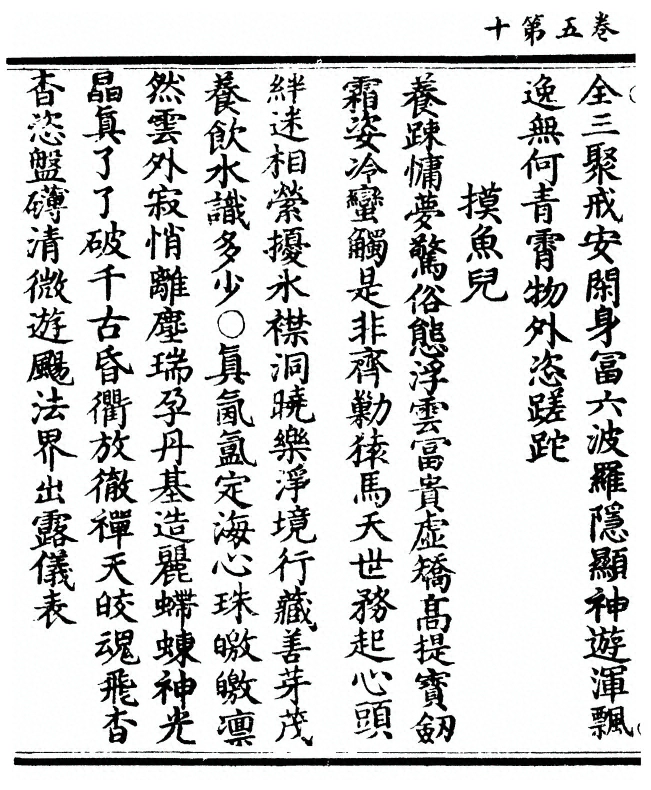 卷五第十
全三聚戒安閑身冨六波羅隱顯神遊渾飄
逸無何青霄物外恣蹉跎
摸魚兒
養踈慵夢驚俗態浮雲冨貴虛矯高提寶劒
霜姿冷蠻觸是非齊勦猿馬夭世務起心頭
絆迷相縈擾氷襟洞曉樂淨境行藏善芽茂
養飲水識多少〇眞氤氳定海心珠皦皦凛
然雲外寂悄離塵瑞孕丹基造麗蝃蝀神光
晶眞了了破千古昏衢放徹禪天皎魂飛杳
杳恣盤礴清微遊颺法界出露儀表